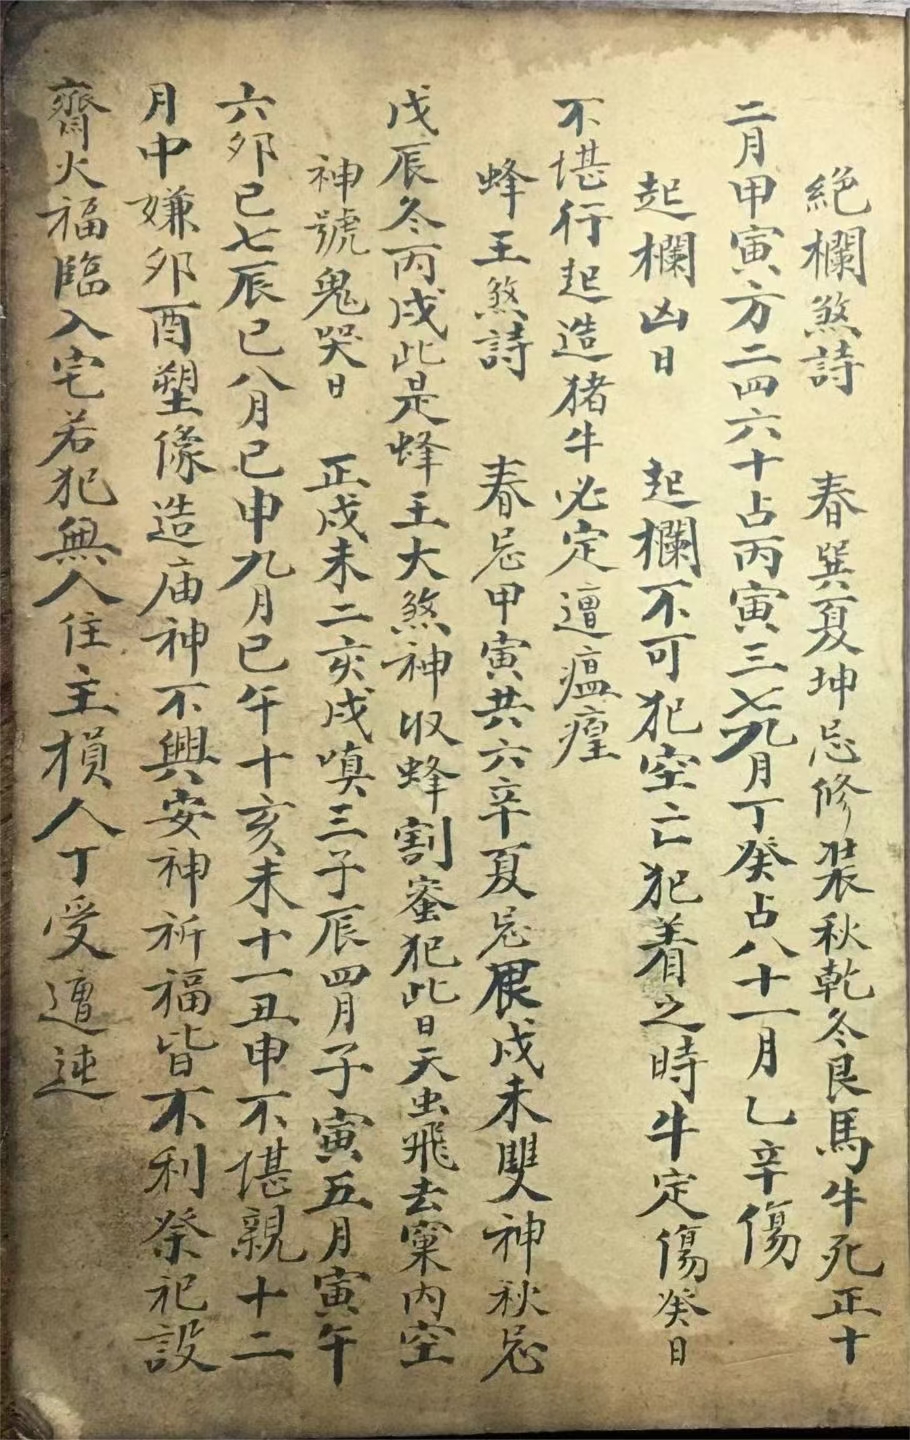 絶欄煞詩　春巽夏坤忌修裝秋乾冬艮馬牛死正十
二月甲寅方二四六十占丙寅三七九月丁癸占八十一月乙辛傷
起欄凶日　起欄不可犯空亡犯着之時牛定傷癸日
不堪行起造猪牛必定遭瘟瘴
蜂王煞詩　春忌甲寅共六辛夏忌辰戌未雙神秋忌
戊辰冬丙戌此是蜂王大煞神收蜂割蜜犯此日天虫飛去窠内空
神號鬼哭日　正戌未二亥戌嗔三子辰四月子寅五月寅午
六卯巳七辰巳八月巳申九月巳午十亥未十一丑申不堪親十二
月中嫌卯酉塑像造庙神不興安神祈福皆不利祭祀設
齋火福臨入宅若犯無人住主損人丁受遭迍